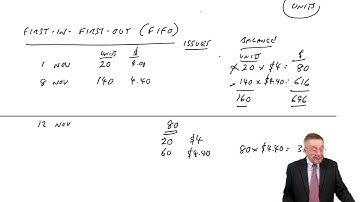 UNITS
FIRST-IN-FIRST-OUT (FIFO)
ISSUES BALANCE
UNITS $ UNITS $
1 NOV 20 4.00 20 x $4 = 80
8 NOV 140 4.40 140 x $4.40 = 616
160 696
12 NOV 80
20 $4
60 $4.40 80 x $4.40 = 3